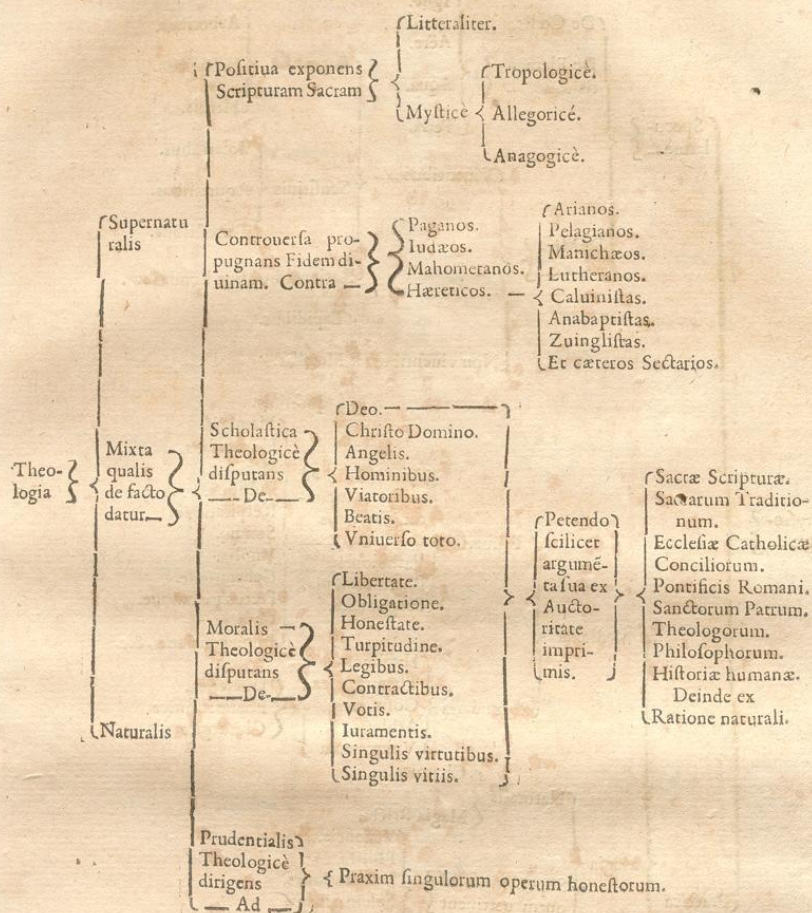 Theo-
logia
Supernatu
ralis
Mixta
qualis
de facto
datur
Naturalis
Poſitiua exponens
Scripturam Sacram
Litteraliter.
Myſticè
Tropologicè.
Allegoricé.
Anagogicè.
Controuerſa pro-
pugnans Fidem di-
uinam. Contra
Paganos.
Iudæos.
Mahometanos.
Hæreticos.
Arianos.
Pelagianos.
Manichæos.
Lutheranos.
Caluiniſtas.
Anabaptiſtas.
Zuingliſtas.
Et cæteros Sectarios.
Scholaſtica
Theologicè
diſputans
De
Deo.
Chriſto Domino.
Angelis.
Hominibus.
Viatoribus.
Beatis.
Vniuerſo toto.
Moralis
Theologicè
diſputans
De
Libertate.
Obligatione.
Honeſtate.
Turpitudine.
Legibus.
Contractibus.
Votis.
Iuramentis.
Singulis virtutibus.
Singulis vitiis.
Petendo
ſcilicet
argumē-
ta ſua ex
Aucto-
ritate
impri-
mis.
Sacræ Scripturæ.
Sacrarum Traditio-
num.
Eccleſiæ Catholicæ
Conciliorum.
Pontificis Romani.
Sanctorum Patrum.
Theologorum.
Philoſophorum.
Hiſtoriæ humanæ.
Deinde ex
Ratione naturali.
Prudentialis
Theologicè
dirigens
Ad
Praxim ſingulorum operum honeſtorum.